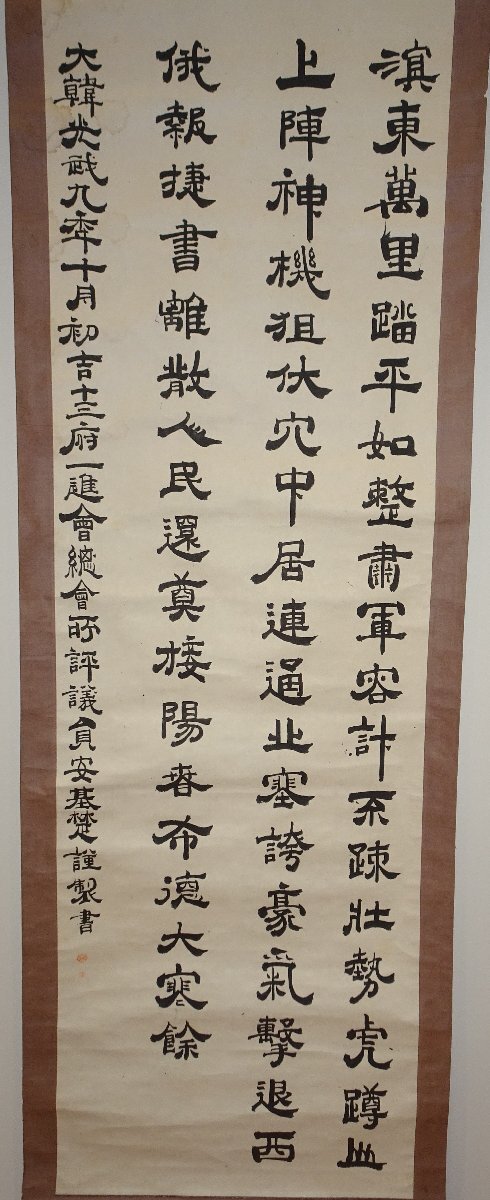 滇東萬里踏平如整肅軍容計不疎壯勢虎蹲山
上陣神機狙伏穴中居連通北塞誇豪氣擊退西
俄報捷書離散人民還奠接陽春布德大寒餘
大韓光武九年十月初吉十三府一進會總會所評議員安基楚謹製書